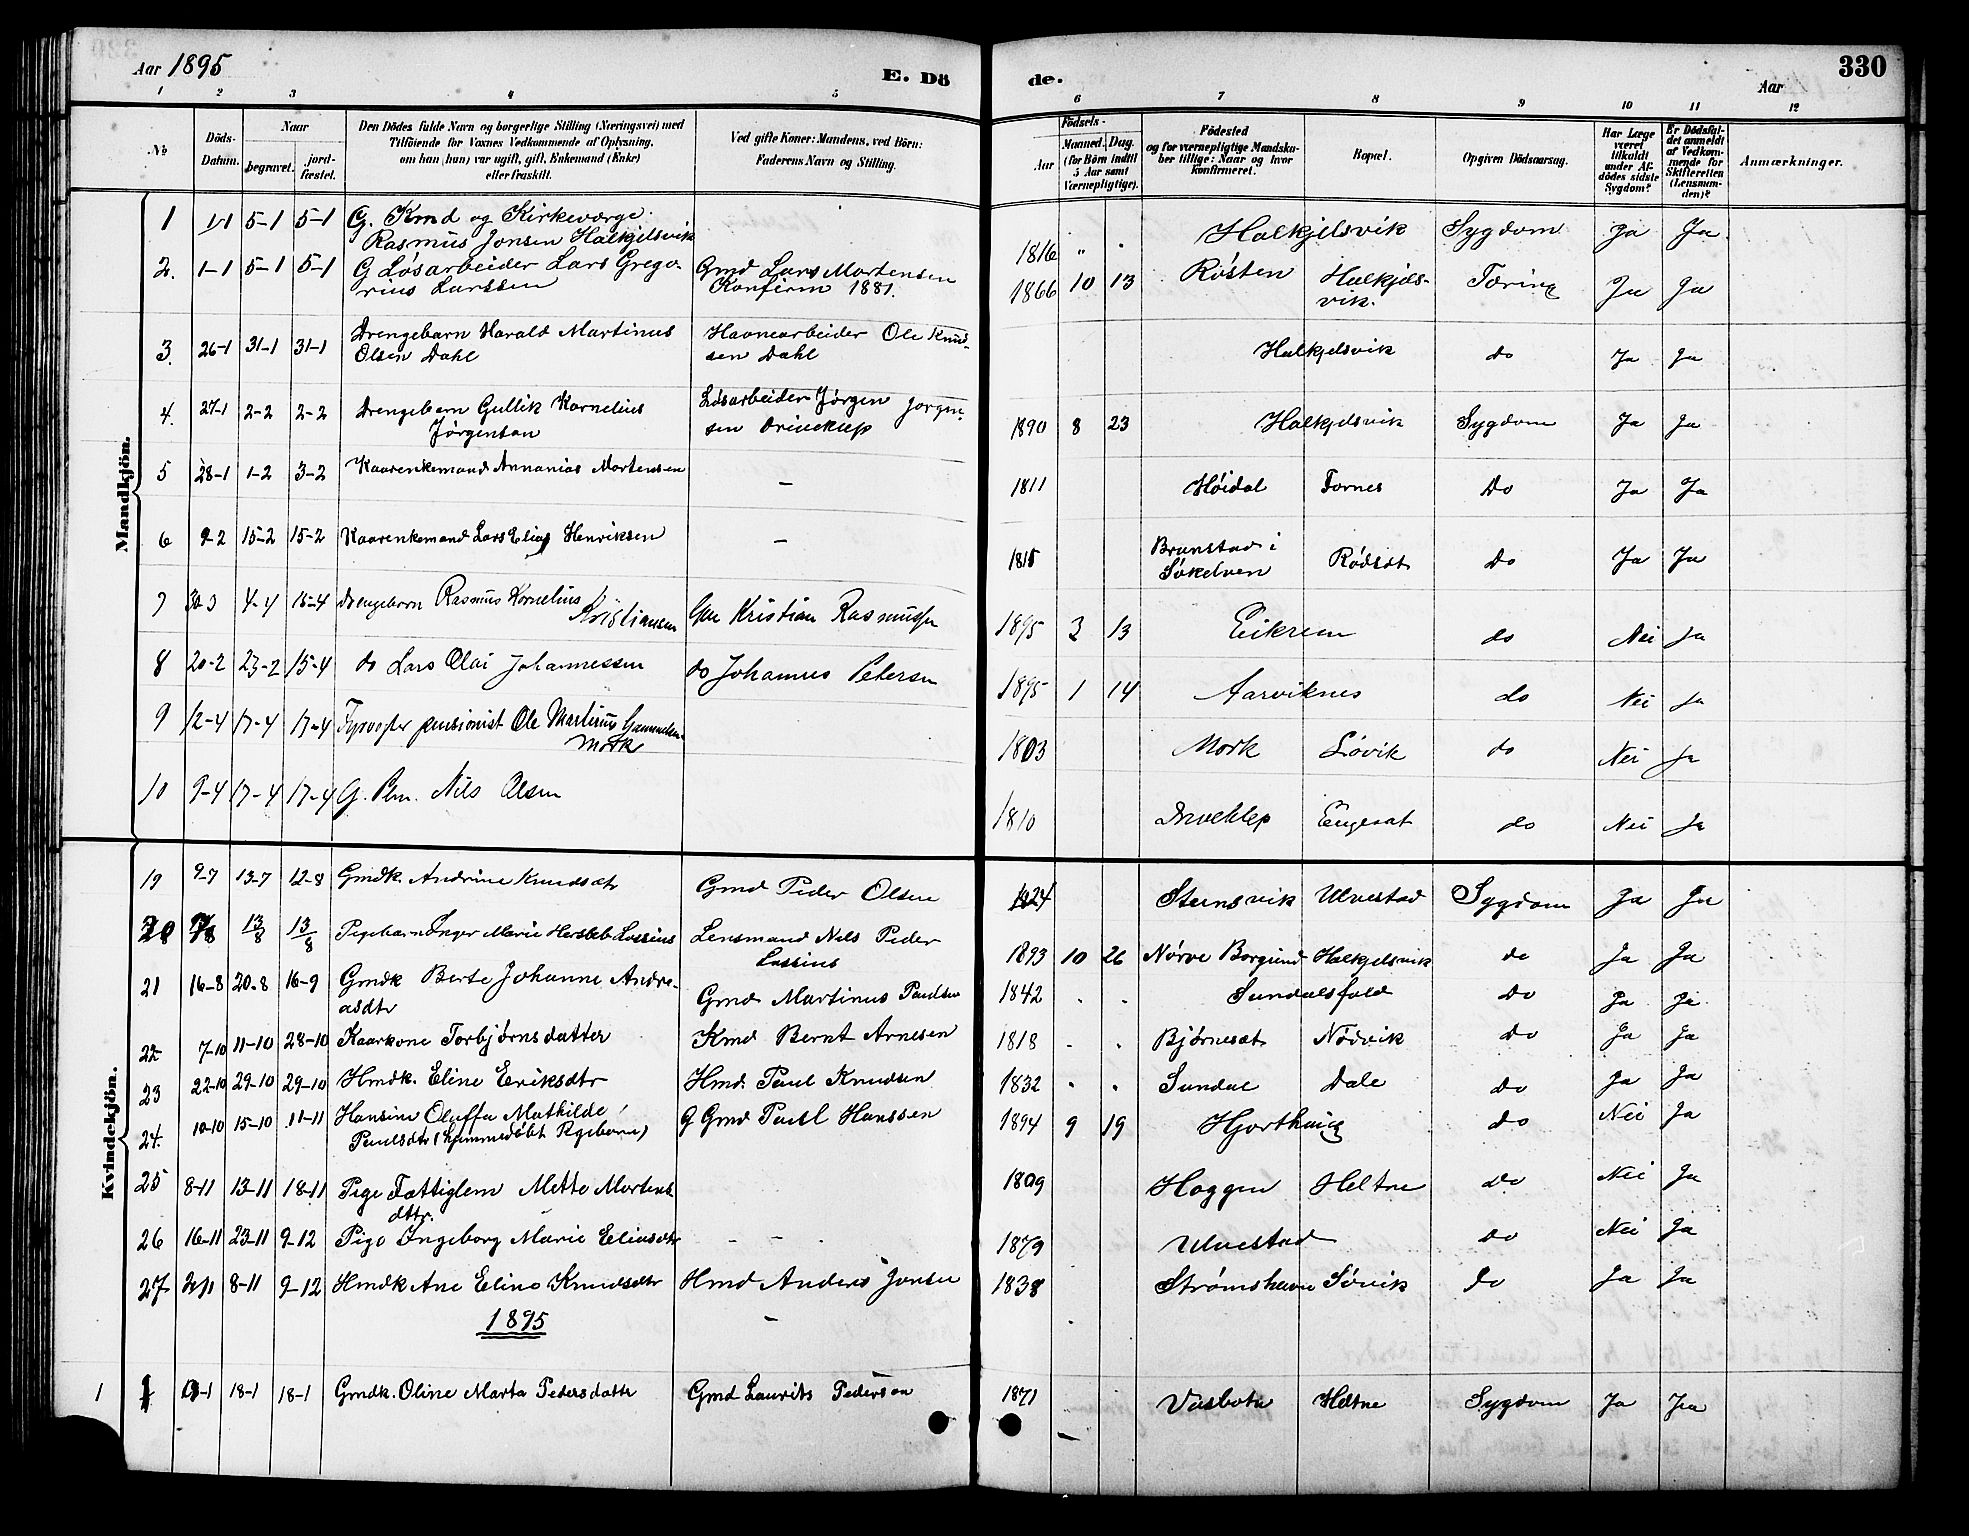 Aar 1895
E. Dö
de.
Aar
330
1 2 3 4 5 6 7 8 9 10 11 12
No
Döds-Datum.
Naar
begravet.
jord-fæstet.
Den Dödes fulde Navn og borgerlige Stilling (Næringsvei) med
Tilföiende for Voxnes Vedkommende af Oplysning,
om han (hun) var ugift, gift, Enkemand (Enke)
eller fraskilt.
Ved gifte Koner: Mandens, ved Börn:
Faderens Navn og Stilling.
Födsels-
Aar
Maaned. Dag.
(for Börn indtil
5 Aar samt
Værnepligtige).
Födested
og for værnepligtige Mandska-
ber tillige: Naar og hvor
konfirmeret.
Bopæl.
Opgiven Dödsaarsag.
Har Læge
været
tilkaldt
under Af-
dödes sidste
Sygdom?
Er Dödsfal-
det anmeldt
af Vedkom-
mende for
Skifteretten
(Lensman-
den)?
Anmærkninger.
Mandkjön.
1 1-1 5-1 5-1 G. Kmd og Kirkeværge
Rasmus Jonsen Halkjelsvik 1816 " Halkjelsvik Sygdom Ja Ja
2. 1-1 5-1 5-1 G Løsarbeider Lars Grego- Gmd Lars Mortensen 1866 10 13 Røsten Halkjels- Tæring Ja Ja
rius Larssen Konfirm 1881. vik.
3. 26-1 31-1 31-1 Drengebarn Harald Martinus Havnearbeider Ole Knud- Halkjelsvik do Ja Ja
Olsen Dahl sen Dahl
4. 27-1 2-2 2-2 Drengebarn Gullik Kornelius Løsarbeider Jørgen Jørgen- 1890 8 23 Halkjelsvik Sygdom Ja Ja
Jørgensen sen Driveklep
5 28-1 1-2 3-2 Kaarenkemand Annanias Mortensen - 1811 Høidal Fornes Do Ja Ja
6 9-2 15-2 15-2 Kaarenkemand Lars Elias Henriksen - 1815 Brunstad i Rødset Do Ja Ja
Søkelven
7 30-3 4-4 15-4 Drengebarn Rasmus Kornelius Kristiansen Kristian Rasmussen 1895 3 13 Eikrem do Nei Ja
8 20-2 23-2 15-4 do Lars Olai Johannessen do Johannes Petersen 1895 1 14 Aarviknes do Nei Ja
9 12-4 17-4 17-4 Fyrvogter pensionist Ole Martinus
Mork 1803 Mork Løvik do Nei Ja
10 9-4 17-4 17-4 G. Nils Olsen 1810 Driveklep Engeset do Nei Ja
Kvindekjön.
19 9-7 13-7 12-8 Gmdk. Andrine Knudsdtr Gmd Peder Olsen 1824 Steinsvik Ulvestad Sygdom Ja Ja
20 13/8 13/8 Pigebarn Inger Marie Hersleb Lossius Lensmand Nils Peder 1893 10 26 Nørve Borgund Halkjelsvik do Ja Ja
Lossius
21 16-8 20-8 16-9 Gmdk Berte Johanne Andre- Gmd Martinus Paulsen 1842 . . Sundalsfold Do Ja Ja
asdtr
22 7-10 11-10 28-10 Kaarkone Torbjørnsdatter Kmd Bernt Arnesen 1818 - . Bjørneset Nødvik do Ja Ja
23 22-10 29-10 29-10 Hmdk. Eline Eriksdtr Hmd. Paul Knudsen 1832 . . Sundal Dale do Ja Ja
24. 10-10 15-10 11-11 Hansine Oluffa Mathilde G Gmd Paul Hanssen 1894 9 19 Hjorthaug do Nei Ja
Paulsdtr (hjemmedøbt Pigebarn)
25 8-11 13-11 18-11 Pige Fattiglem Mette Mortens 1809 Haggen Heltne do Nei Ja
dttr.
26 16-11 23-11 9-12 Pige Ingeborg Marie Eliasdtr - - 1879 Ulvestad do Nei Ja
27 2-11 8-11 9-12 Hmdk Ane Eline Knudsdtr Hmd Anders Jonsen 1838 Strømshavn Søvik Do Ja Ja
1895 -
1 1 13-1 18-1 18-1 Gmdk. Oline Marta Pedersdattr Gmd Laurits Pedersen 1871 Vasbotn Heltne Sygdom Ja Ja